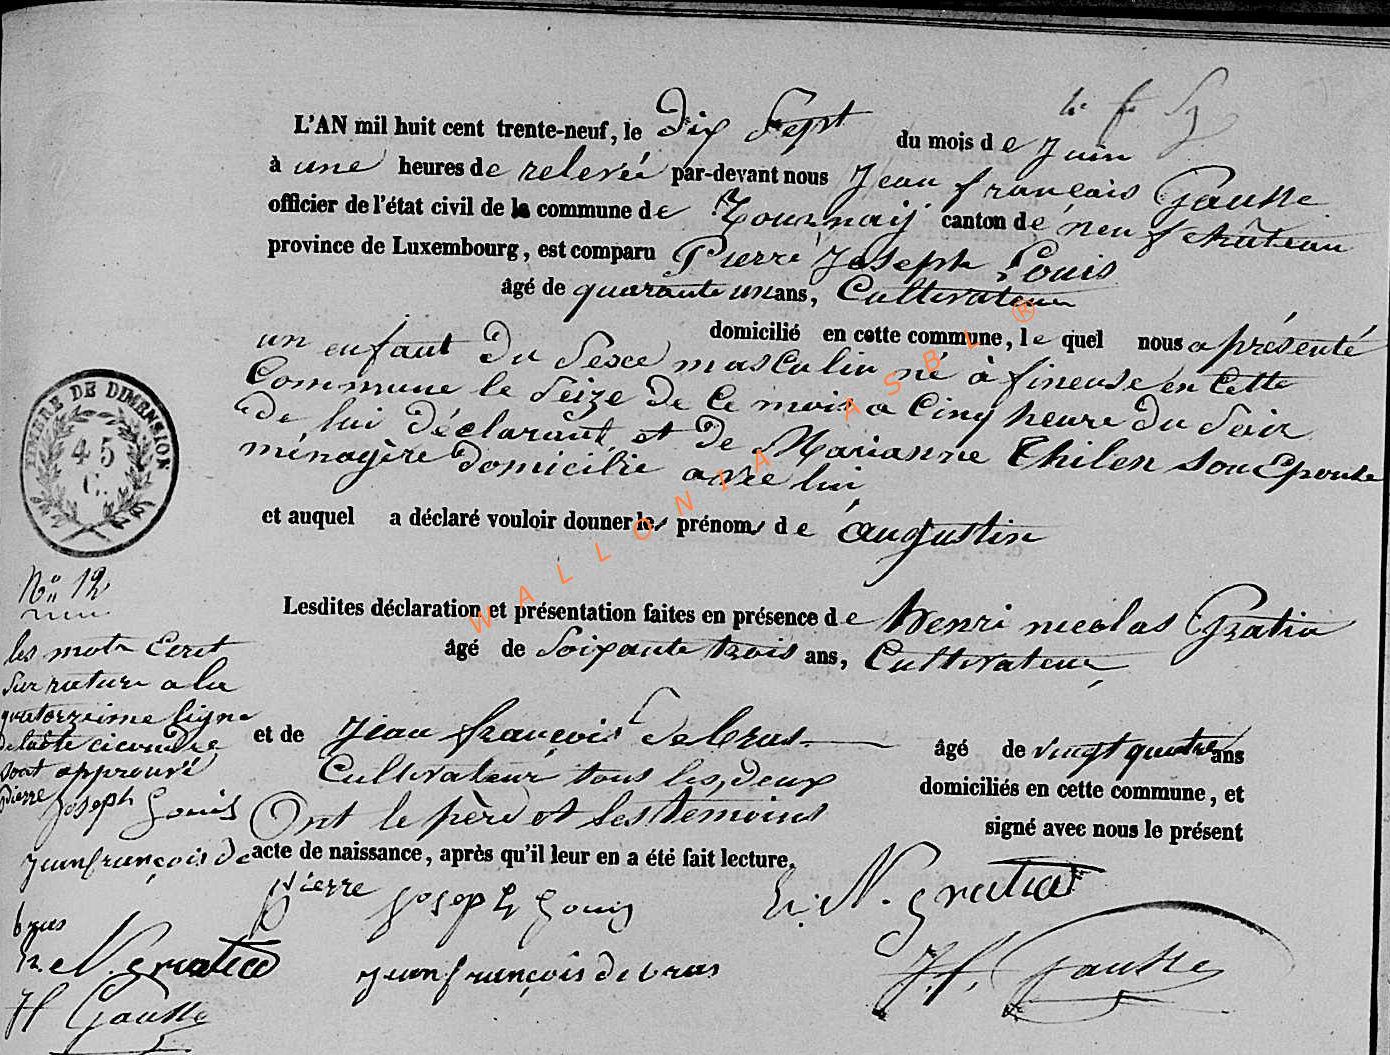 L'AN mil huit cent trente-neuf, le Dix Sept du mois de Juin
à une heures de relevée par-devant nous Jean françois Gausse
officier de l'état civil de la commune de Tournaij canton de neufchâteau
province de Luxembourg, est comparu Pierre Joseph Louis
âgé de quarante un ans, Cultivateur
domicilié en cette commune, le quel nous a présenté
un enfant du Sexe masculin né à fineuse en Cette
Commune le Seize de Ce mois a Cinq heure du Soir
de lui déclarant et de Marianne Thilen son Epouse
ménagère domicilié avec lui
et auquel a déclaré vouloir donner les prénoms de augustin
Lesdites déclaration et présentation faites en présence de henri nicolas Gratia
âgé de Soixante trois ans, Cultivateur
et de Jean françois debras âgé de vingt quatre ans
Cultivateur tous les deux domiciliés en cette commune, et
Ont le père et les temoins signé avec nous le présent
acte de naissance, après qu'il leur en a été fait lecture.
pierre joseph Louis
h. N. gratia
jean françois debras
J.f. Gausse
TIMBRE DE DIMENSION
45
C.
No 12
les mots Ecrit
sur rature a la
quatorzieme ligne
sont approuvé
pierre joseph Louis
jean françois de
bras
h. N. gratia
Jf Gausse
WALLONIA ASBL ®